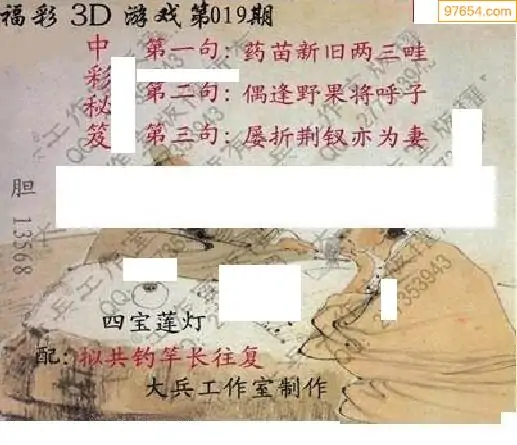 97654.com
福彩 3D 游戏第019期
中彩秘笈
第一句:药苗新旧两三畦
第二句:偶逢野果将呼子
第三句:屡折荆钗亦为妻
胆 13568
四宝莲灯
配:拟共钓竿长往复
大兵工作室制作